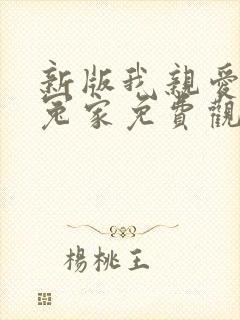 新版我親愛
冤家免費觀
楊桃王